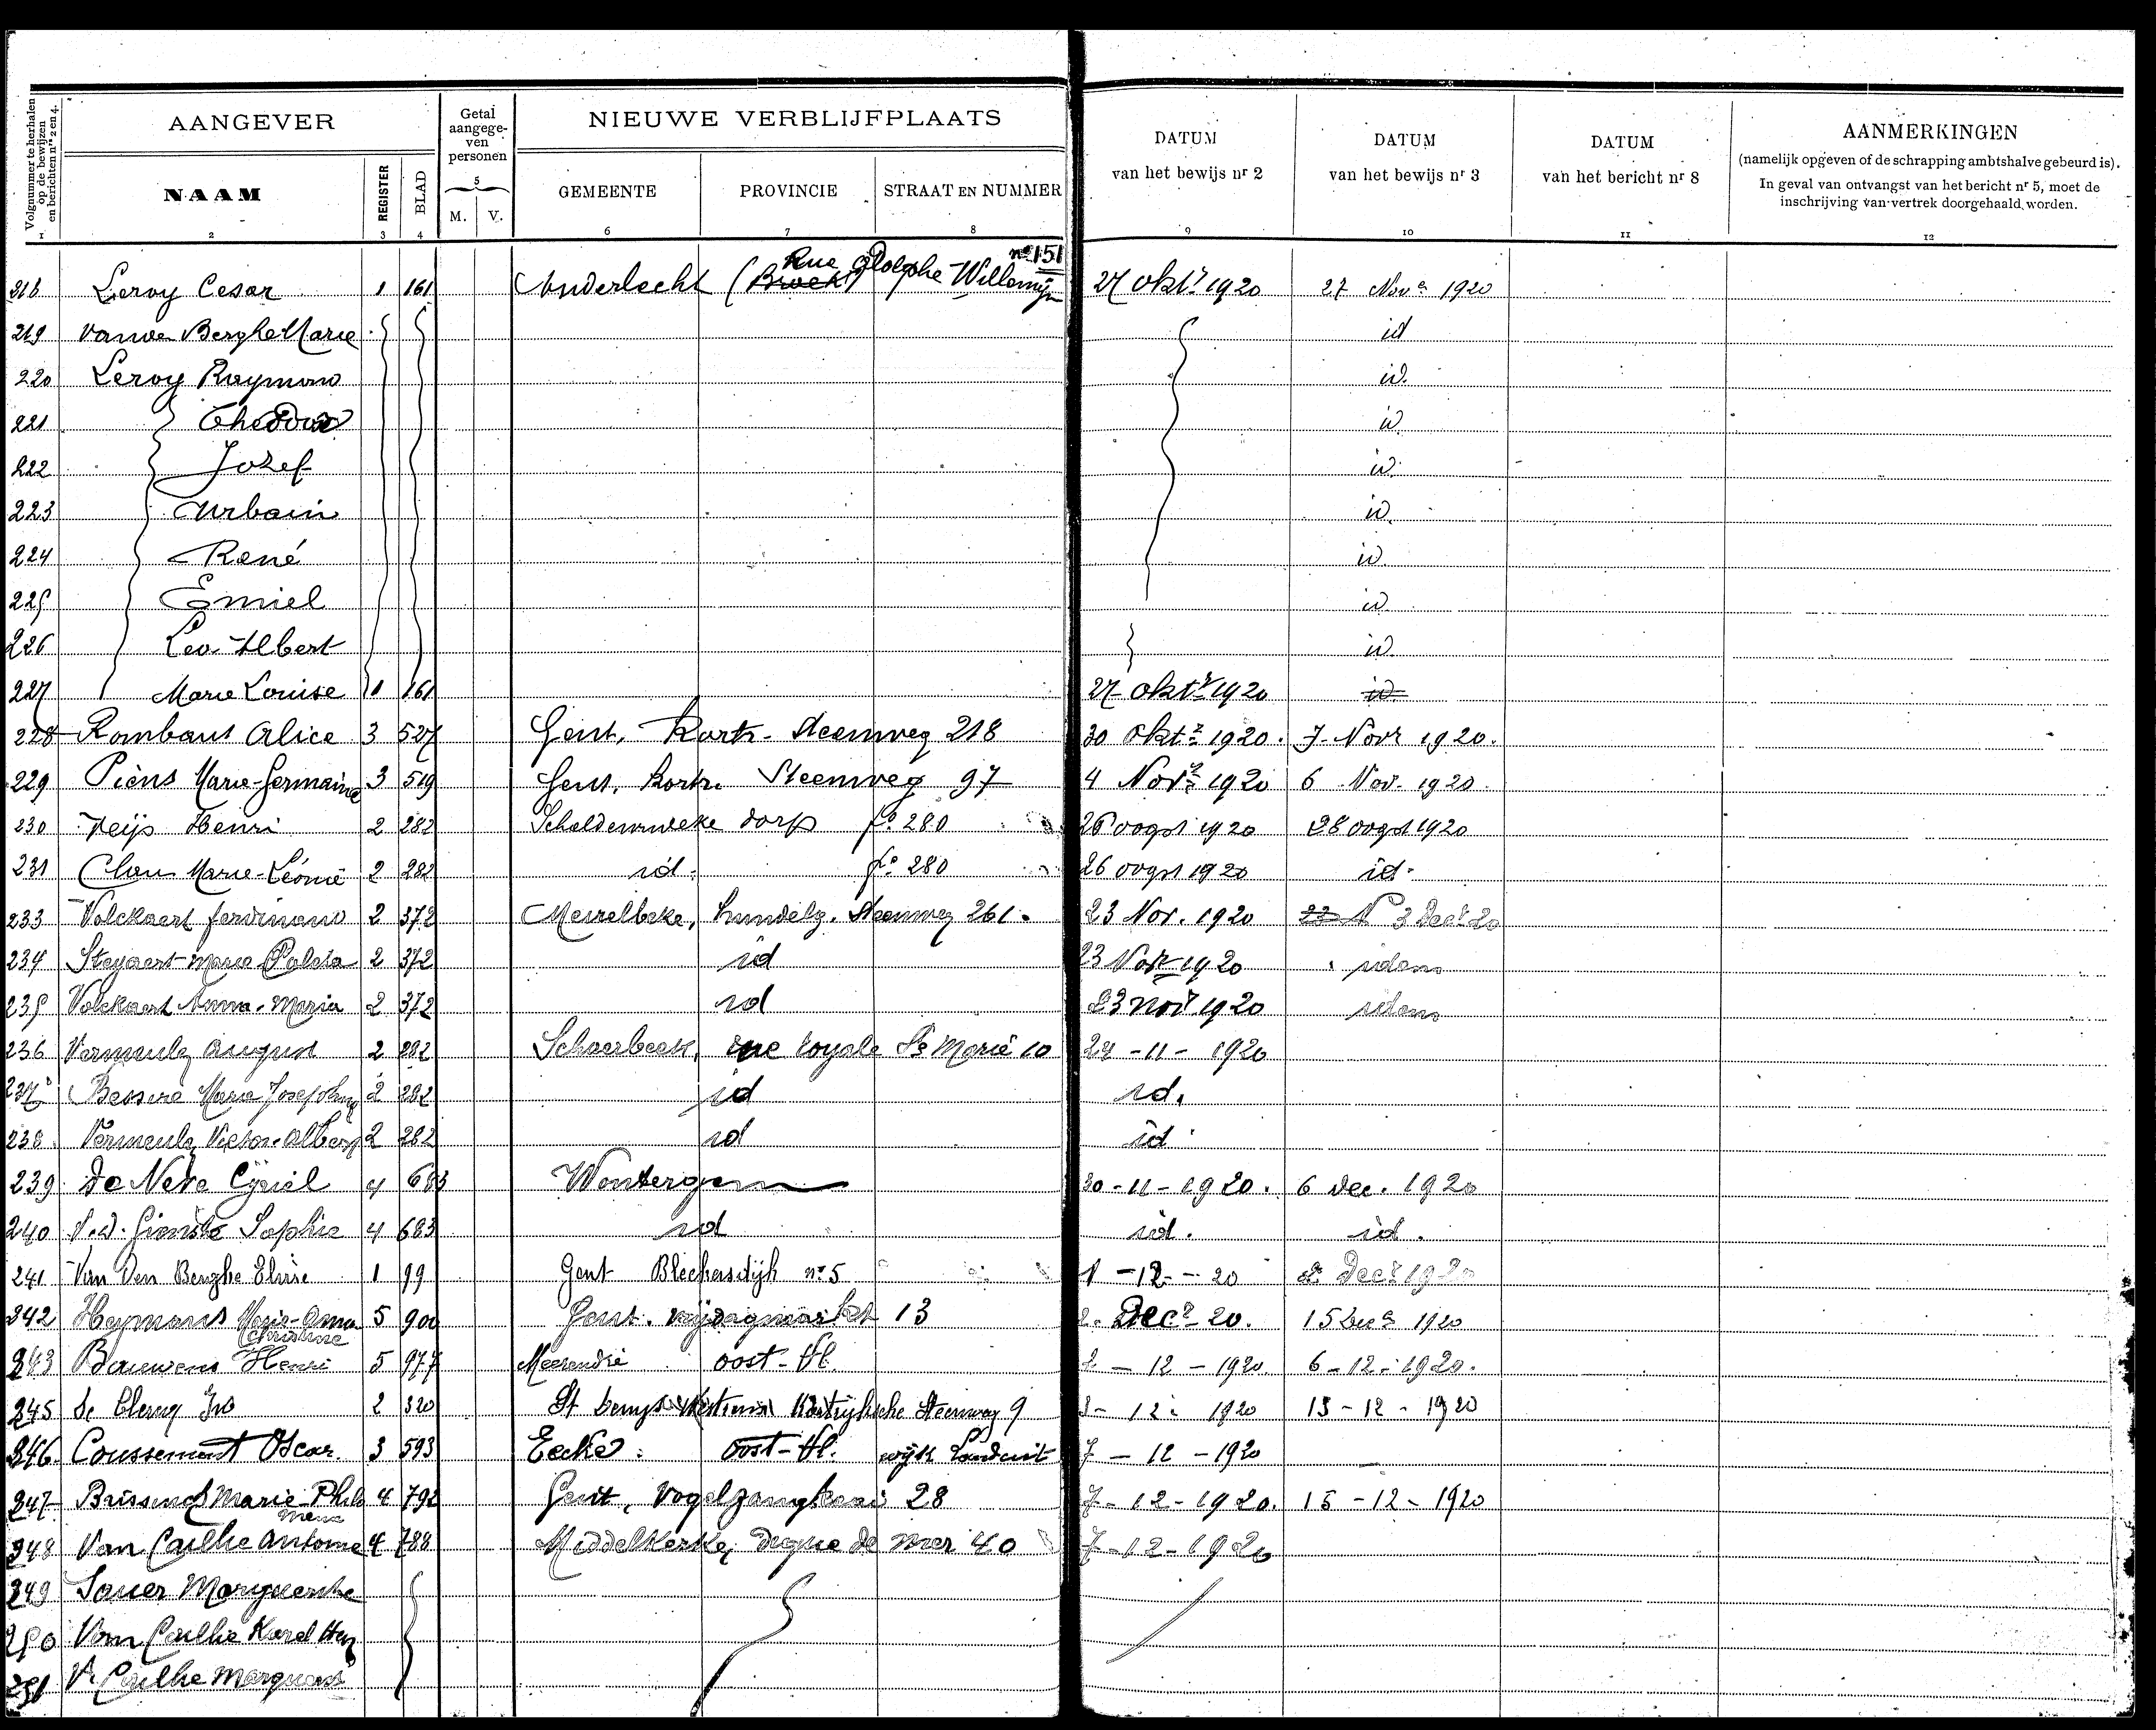 Volgnummer te herhalen op de bewijzen en berichten nrs 2 en 4.
AANGEVER
Getal aangege-ven personen
NIEUWE VERBLIJFPLAATS
DATUM van het bewijs nr 2
DATUM van het bewijs nr 3
DATUM van het bericht nr 8
AANMERKINGEN
(namelijk opgeven of de schrapping ambtshalve gebeurd is).
In geval van ontvangst van het bericht nr 5, moet de
inschrijving van vertrek doorgehaald worden.
NAAM REGISTER BLAD 5 M. V. GEMEENTE PROVINCIE STRAAT EN NUMMER
1 2 3 4 6 7 8 9 10 11 12
Rue Adolphe Willemyn no 151
218 Leroy Cesar 1 161 Anderlecht (Broek) 27 okt. 1920 27 Nov. 1920
219 Vanden Berghe Marie id
220 Leroy Raymond id.
221 Theodoor id
222 Jozef id.
223 Urbain id.
224 René id.
225 Emiel id.
226 Leo Albert id.
227 Marie Louise 1 161 27 okt. 1920 id.
228 Rombaut Alice 3 527 Gent, Kortr. Steenweg 218 30 Okt. 1920. 7 Novr 1920.
229 Piens Marie-Germaine 3 519 Gent, Kortr. Steenweg 97 4 Novr 1920 6 Nov. 1920.
230 Henri 2 282 Schelderode dorp fo 280 26 oogst 1920 28 oogst 1920
231 Marie-Léonie 2 282 id. fo 280 26 oogst 1920 id.
233 Volckaert ferdinand 2 372 Meirelbeke, hundelg. Steenweg 261. 23 Nov. 1920 3 Decr 20
234 Steyaert Marie 2 372 id 23 Nov 1920 idem
235 Volckaert Anna-Maria 2 372 id 23 Novr 1920 idem
236 Vermeulen August 2 282 Schaerbeek, rue royale Ste Marie 10 24-11-1920
237 Bessere Marie Josephine 2 282 id id.
238 Vermeulen Victor-Albert 2 282 id id
239 De Neve Cyriel 4 683 Wontergem 30-11-1920. 6 dec. 1920
240 Sophie 4 683 id id. id.
241 Van Den Berghe Elvire 1 99 Gent Bleekersdijk no 5 1-12-20 2 Decr 1920
242 Heymans Marie-Anna Christine 5 900 Gent. vrijdagmarkt 13 2. Decr 20. 15 Decr 1920
243 Bauwens Henri 5 977 Meerendré oost-Vl. 2-12-1920. 6-12-1920.
245 De Clercq 2 320 St Denys Westrem Kortrijksche Steenweg 9 3-12-1920 13-12-1920
246 Coussement Oscar. 3 593 Eecke oost-Vl. wijk Landuit 7-12-1920
247 Marie Philomena 4 792 Gent, Vogelzangkaai 28 7-12-1920. 15-12-1920
248 Van Cailhe Antoine 4 788 Middelkerke, Digue de mer 40 7-12-1920
249 Marguerite
250 Van Cailhe Karel
251 V. Cailhe